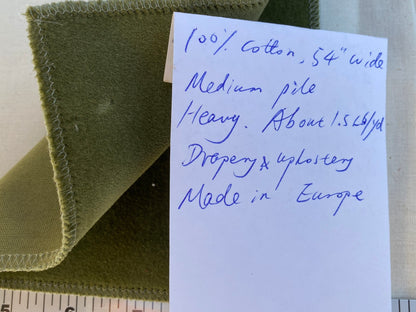 100% cotton, 54" wide
Medium pile
Heavy. About 1.5 Lb/yd
Drapery & uphostery
Made in Europe
5 6 7 8 9